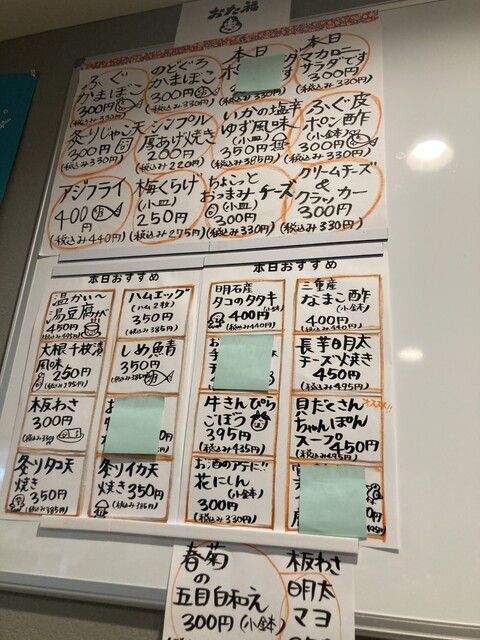 おた福
ふぐ
かまぼこ
300円
(税込み330円)
のどぐろ
かまぼこ
300円
(税込み330円)
本日
(税込み330円)
本日
マカロニ
サラダです
300円
(税込み330円)
炙りじゃこ天
300円
(税込み330円)
シンプル
厚あげ焼き
200円
(税込み220円)
いかの塩辛
ゆず風味
(小皿)
350円
(税込み385円)
ふぐ皮
ポン酢
(小鉢)
300円
(税込み330円)
アジフライ
400円
(税込み440円)
梅くらげ
(小皿)
250円
(税込み275円)
ちょこっと
おつまみチーズ
(小皿)
300円
(税込み330円)
クリームチーズ
&
クラッカー
300円
(税込み330円)
本日おすすめ
温かい〜
湯豆腐
450円
(税込み495円)
ハムエッグ
(ハム2枚)
350円
(税込み385円)
大根千枚漬
風味
250円
しめ鯖
350円
(税込み385円)
板わさ
300円
(税込み330)
炙りタコ天
焼き350円
(税込み385円)
炙りイカ天
焼き350円
(税込み385円)
本日おすすめ
明石産
タコのタタキ
(小鉢)
400円
(税込み440円)
三重産
なまこ酢
(小鉢)
400円
(税込み440円)
長芋明太
チーズ焼き
450円
(税込み495円)
牛きんぴら
ごぼう
395円
(税込み435円)
オススメ!!
貝だくさん
ちゃんぽん
スープ
450円
(税込み495円)
お酒のアテに!!
花にしん
(小鉢)
300円
(税込み330円)
春菊
の
五目白和え
300円(小鉢)
板わさ
明太
マヨ